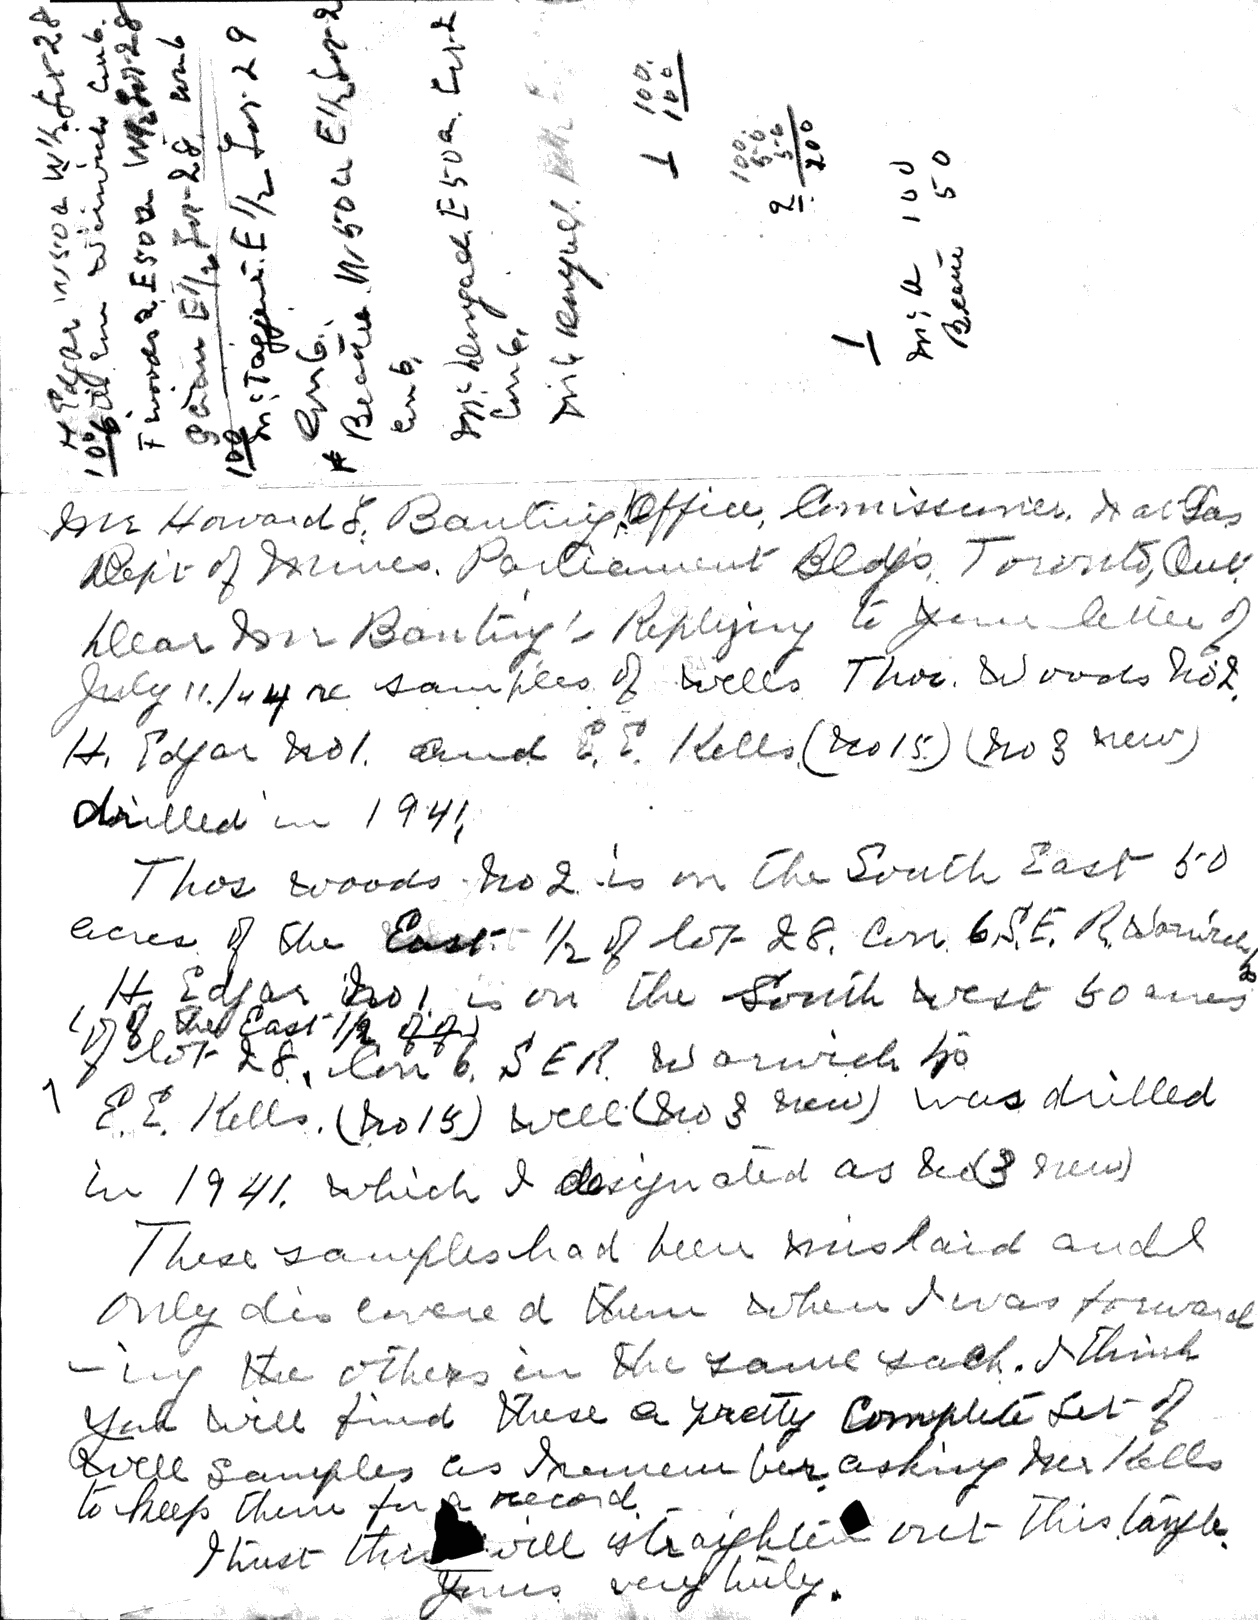 H Edgar W 50 a W½ Lot 28
100 Con 6 Warwick Con 6.
T Woods E 50 a W½ Lot 28
E½ Lot 28, Con 6
100 McTaggart E½ Lot 29
Con 6.
# Beattie W 50 a E½ Lot 2
Con 6,
E 50 a. Lot 2
Con 6,
1 100.
100
100.
50
50
2 200
1
Mc A 100
50
Mr Howard L. Banting, Office, Comissioner. Nat Gas
Dept of Mines. Parliament Bldgs, Toronto, Ont.
Dear Mr Banting:- Replying to your letter of
July 11/44 re samples of wells Thos. Woods No 2.
H. Edgar No 1. and E. E. Kells (No 15.) (No 3 new)
drilled in 1941.
Thos Woods No 2 is on the South East 50
acres of the East ½ of lot 28. Con. 6, S. E. R, Warwick Tp
H Edgar No 1. is on the South West 50 acres
(of the East ½ of)
of lot 28., Con 6. S E R. Warwick Tp
E. E. Kells. (No 15) well (No 3 new) was drilled
in 1941. which I designated as No (3 new)
These samples had been mislaid and I
only discovered them when I was forward
-ing the others in the same sack. I think
you will find these a pretty complete set of
well samples as I remember asking Mr Kells
to keep them for a record.
I trust this will straighten out this tangle.
Yours very truly.